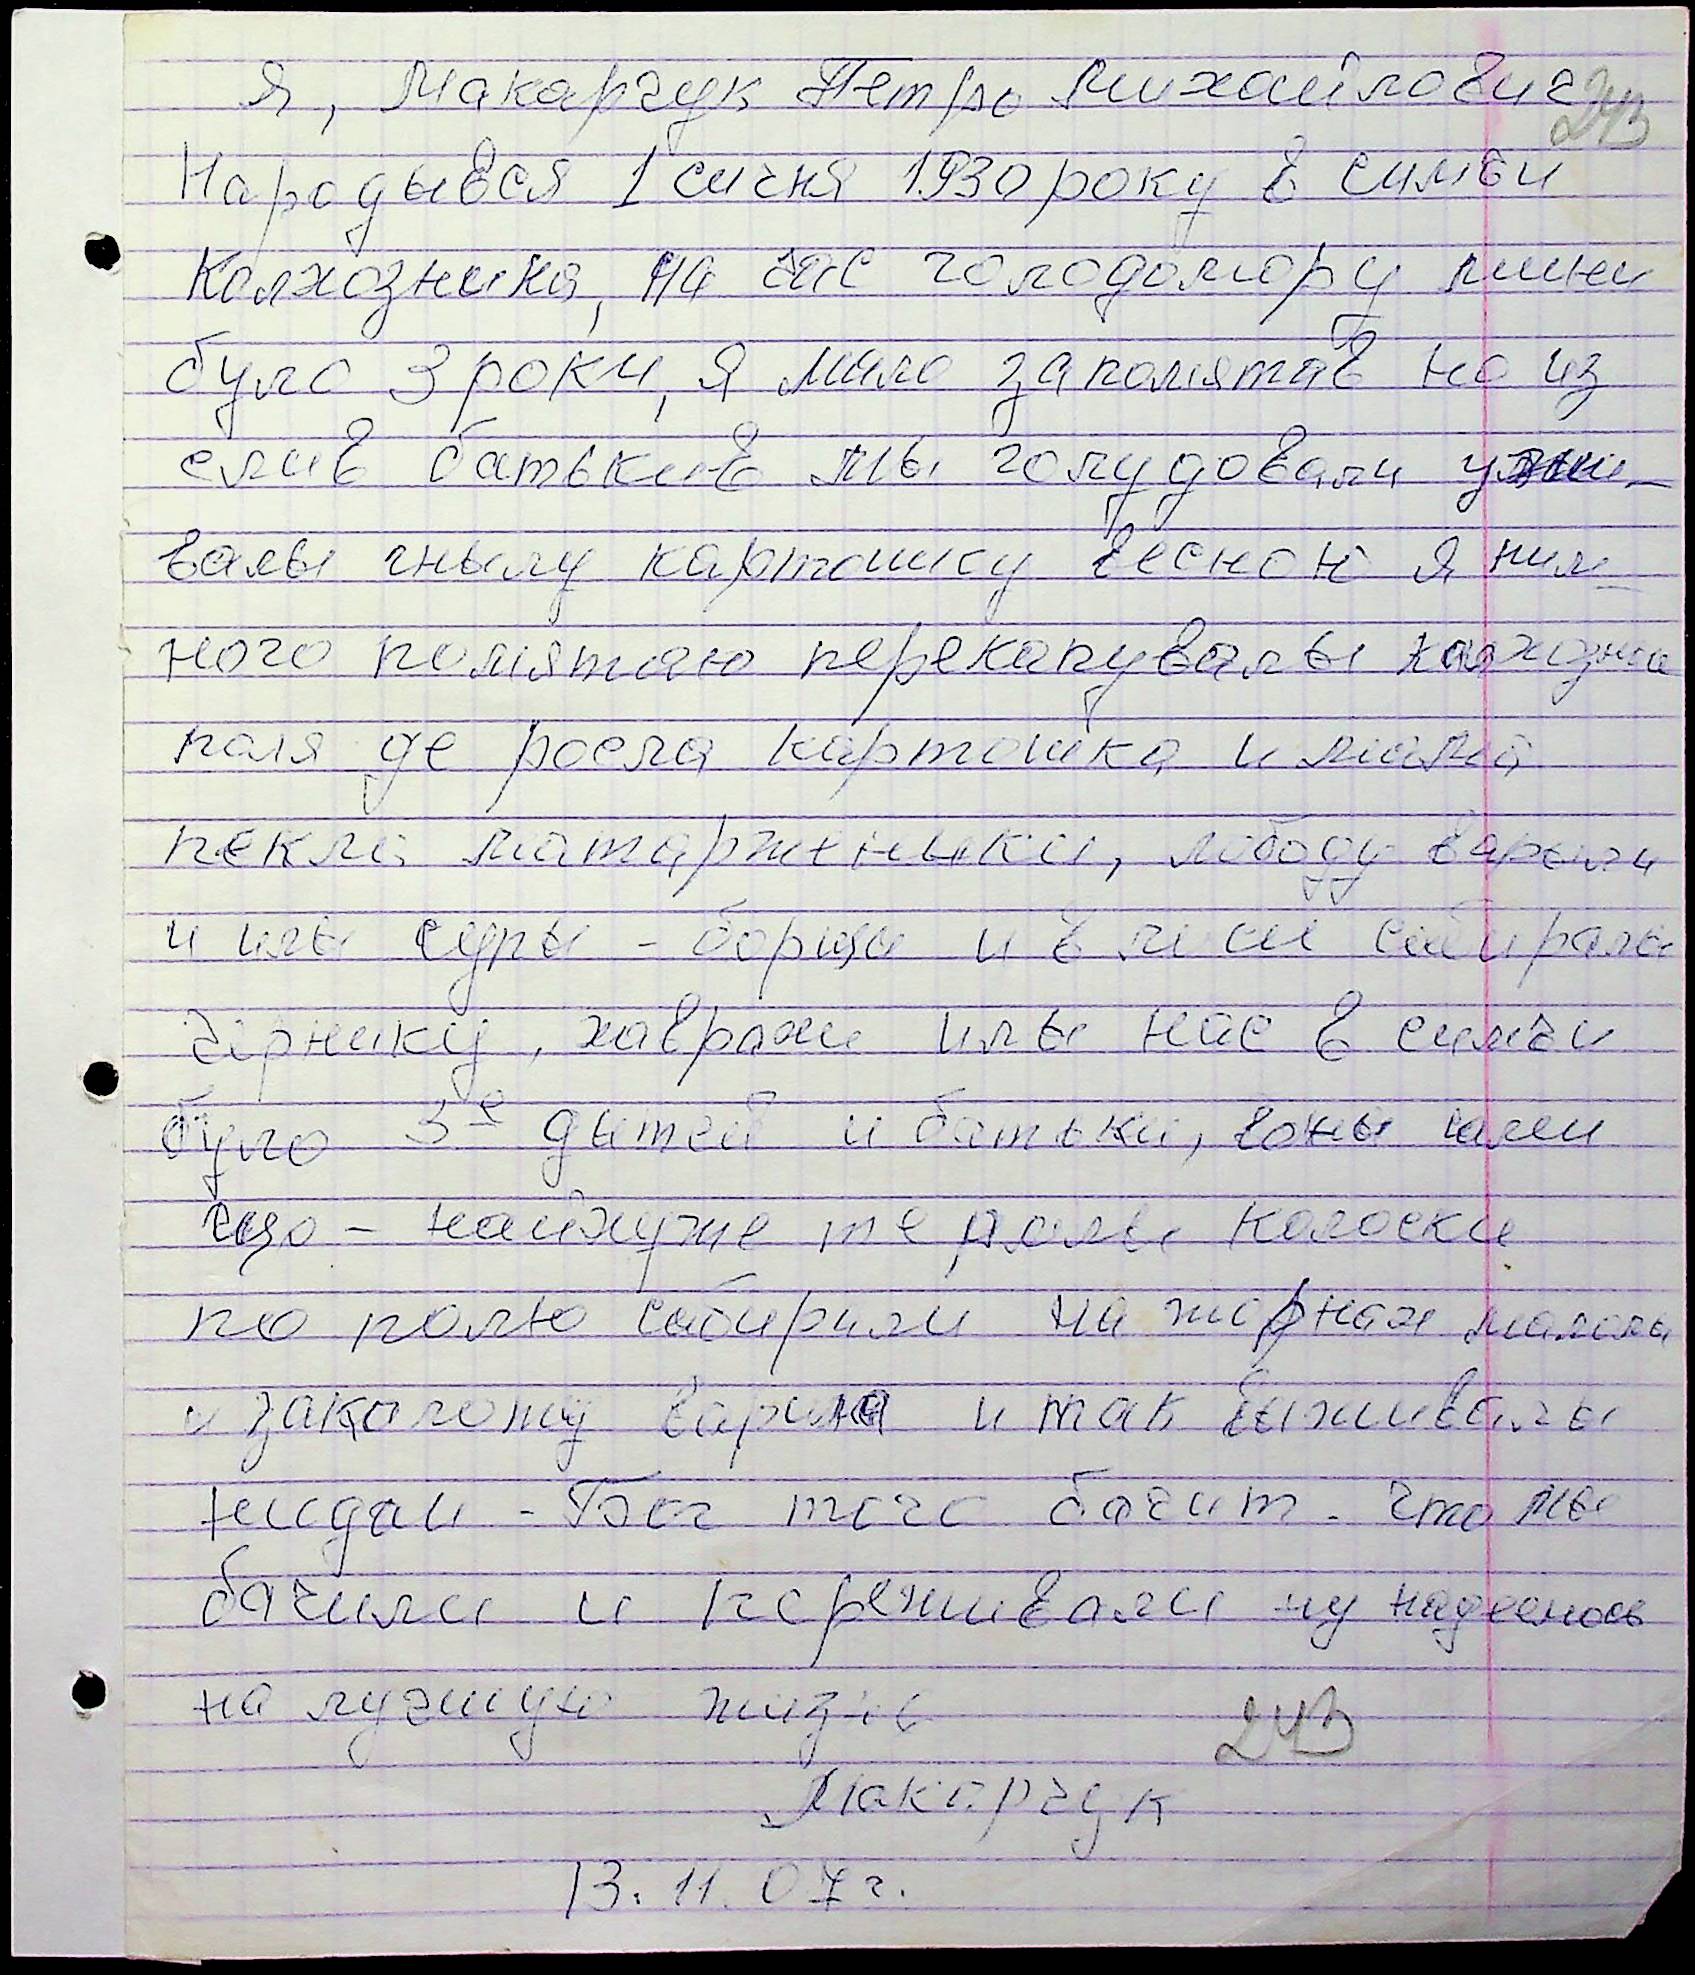 Я, Макарчук Петро Михайлович
243
Народывся 1 сичня 1930 року в симьи
Колхозника, на час голодомору мини
було 3 роки, я мало запомятав но из
слив батькив мы голудовали ужи-
валы гнылу картошку весной я ним-
ного помятаю перекапувалы колхозни
поля де росла картошка и мама
пекла маторженики, лободу варыли
и илы супы - борщи и в лисе собиралы
чорнику, илы нас в симьи
було 3е дытей и батьки, воны сами
що - найхуже терялы колоски
по полю собирали на жорнах малолы
и заколоту варила и так выживалы
нидай - Бог того бачит - что мы
бачили и переживали ну надеюсь
на лучшую жизнь
243
Макарчук
13.11.07г.